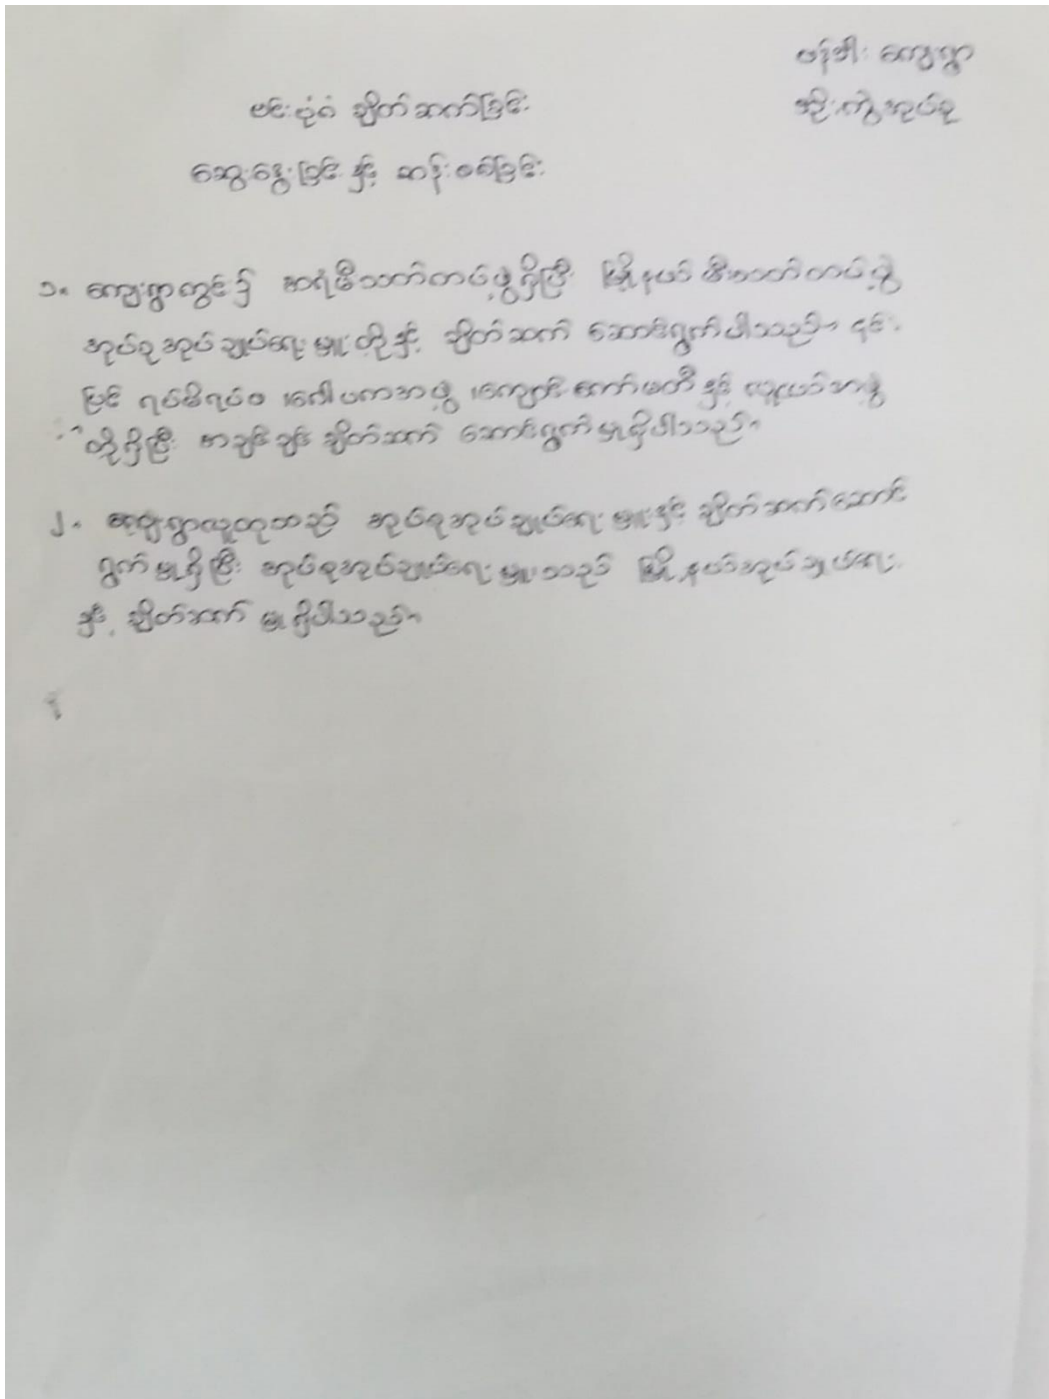 ဖန်ခါး ကျေးရွာ
ဗင်းပုံဂံ ချိတ်ဆက်ခြင်း
အိုးကွဲအုပ်စု
ဆွေးနွေးခြင်းနှင့် ဆန်းစစ်ခြင်း
၁။ ကျေးရွာတွင်၌ အရံမီးသတ်တပ်ဖွဲ့ရှိပြီး မြို့နယ် မီးသတ်တပ်ဖွဲ့
အုပ်စုအုပ်ချုပ်ရေးမှူးတို့နှင့် ချိတ်ဆက် ဆောင်ရွက်ပါသည်။ ၎င်း
ပြင် ရပ်မိရပ်ဖ ၊ဂေါပကအဖွဲ့ ၊ကျောင်းကော်မတီနှင့် လူငယ်အဖွဲ့
တို့ရှိပြီး အချင်းချင်း ချိတ်ဆက် ဆောင်ရွက်မှုရှိပါသည်။
၂။ ကျေးရွာလူထုသည် အုပ်စုအုပ်ချုပ်ရေးမှူးနှင့် ချိတ်ဆက်ဆောင်
ရွက်မှုရှိပြီး အုပ်စုအုပ်ချုပ်ရေးမှူးသည် မြို့နယ်အုပ်ချုပ်ရေး
နှင့် ချိတ်ဆက်မှုရှိပါသည်။